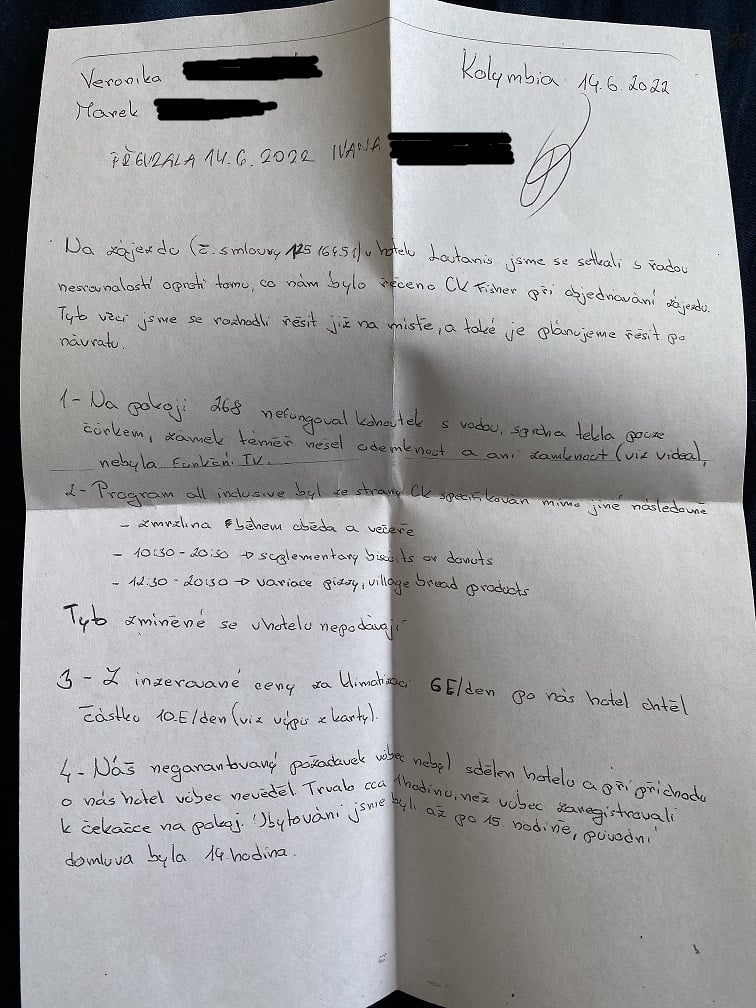 Veronika
Kolymbia 14.6.2022
Marek
PŘEVZALA 14.6.2022 IVANA
Na zájezdu (č. smlouvy 12516451) v hotelu Lutanis jsme se setkali s řadou
nesrovnalostí oproti tomu, co nám bylo řečeno CK Fisher při objednávání zájezdu.
Tyto věci jsme se rozhodli řěsit již na místě, a také je plánujeme řěsit po
návratu.
1- Na pokoji 268 nefungoval kohoutek s vodou, sprcha tekla pouze
čůrkem, zámek téměř nešel odemknout a ani zamknout (viz videa),
nebyla funkční TV.
2- Program all inclusive byl ze strany CK specifikován mimo jiné následovně
- zmrzlina během oběda a večeře
- 10:30 - 20:30 → suplementary biscits or donuts
- 12:30 - 20:30 → variace pizzy, village bread products
Tyto zmíněné se v hotelu nepodávají
3 - Z inzerované ceny za klimatizaci 6E/den po nás hotel chtěl
částku 10.E/den (viz výpis z karty).
4- Náš negarantovaný požadavek vůbec nebyl sdělen hotelu a při příchodu
o nás hotel vůbec nevěděl. Trvalo cca 1hodinu, než vůbec zaregistrovali
k čekačce na pokoj. Ubytováni jsme byli až po 15 hodině, původní
domluva byla 14.hodina.